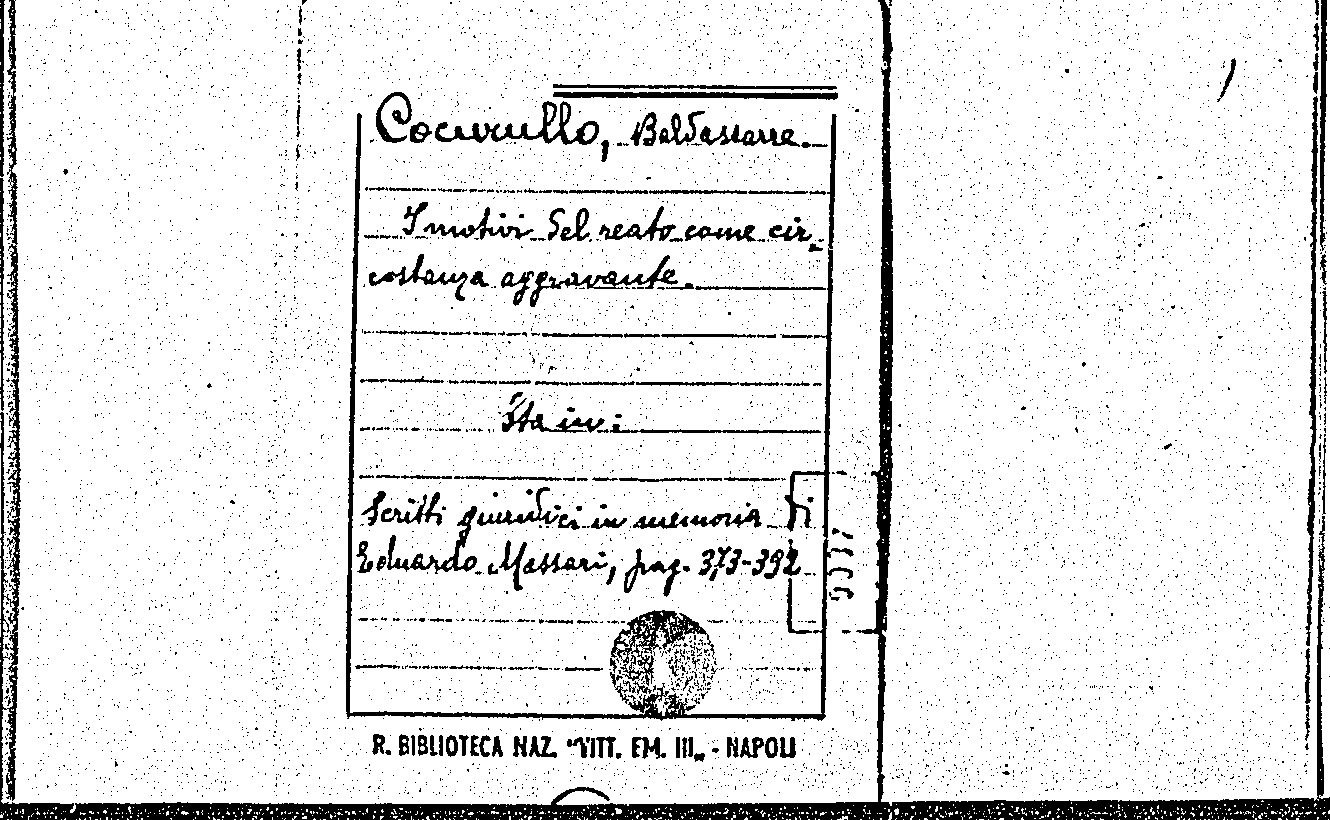 Cocurullo, Baldassarre.
I motivi del reato come cir-
costanza aggravante.
Sta in:
Scritti giuridici in memoria di
Eduardo Massari, pag. 373-392
R. BIBLIOTECA NAZ. "VITT. EM. III„ - NAPOLI